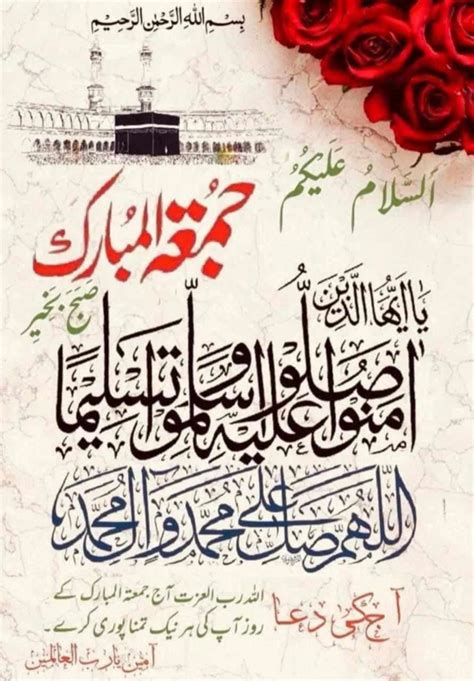 بِسْمِ اللهِ الرَّحْمٰنِ الرَّحِيْمِ
اَلسَّلَامُ عَلَیْکُمْ
جُمُعَۃُ المُبارک
صبح بخیر
يَا اَيُّهَا الَّذِيْنَ
اٰمَنُوْا صَلُّوْا عَلَيْهِ وَسَلِّمُوْا تَسْلِيْمًا
اللّٰهُمَّ صَلِّ عَلٰى مُحَمَّدٍ وَّآلِ مُحَمَّدٍ
آج کی دعا
اللہ رب العزت آج جمعۃ المبارک کے
روز آپ کی ہر نیک تمنا پوری کرے۔
آمین یا رب العالمین